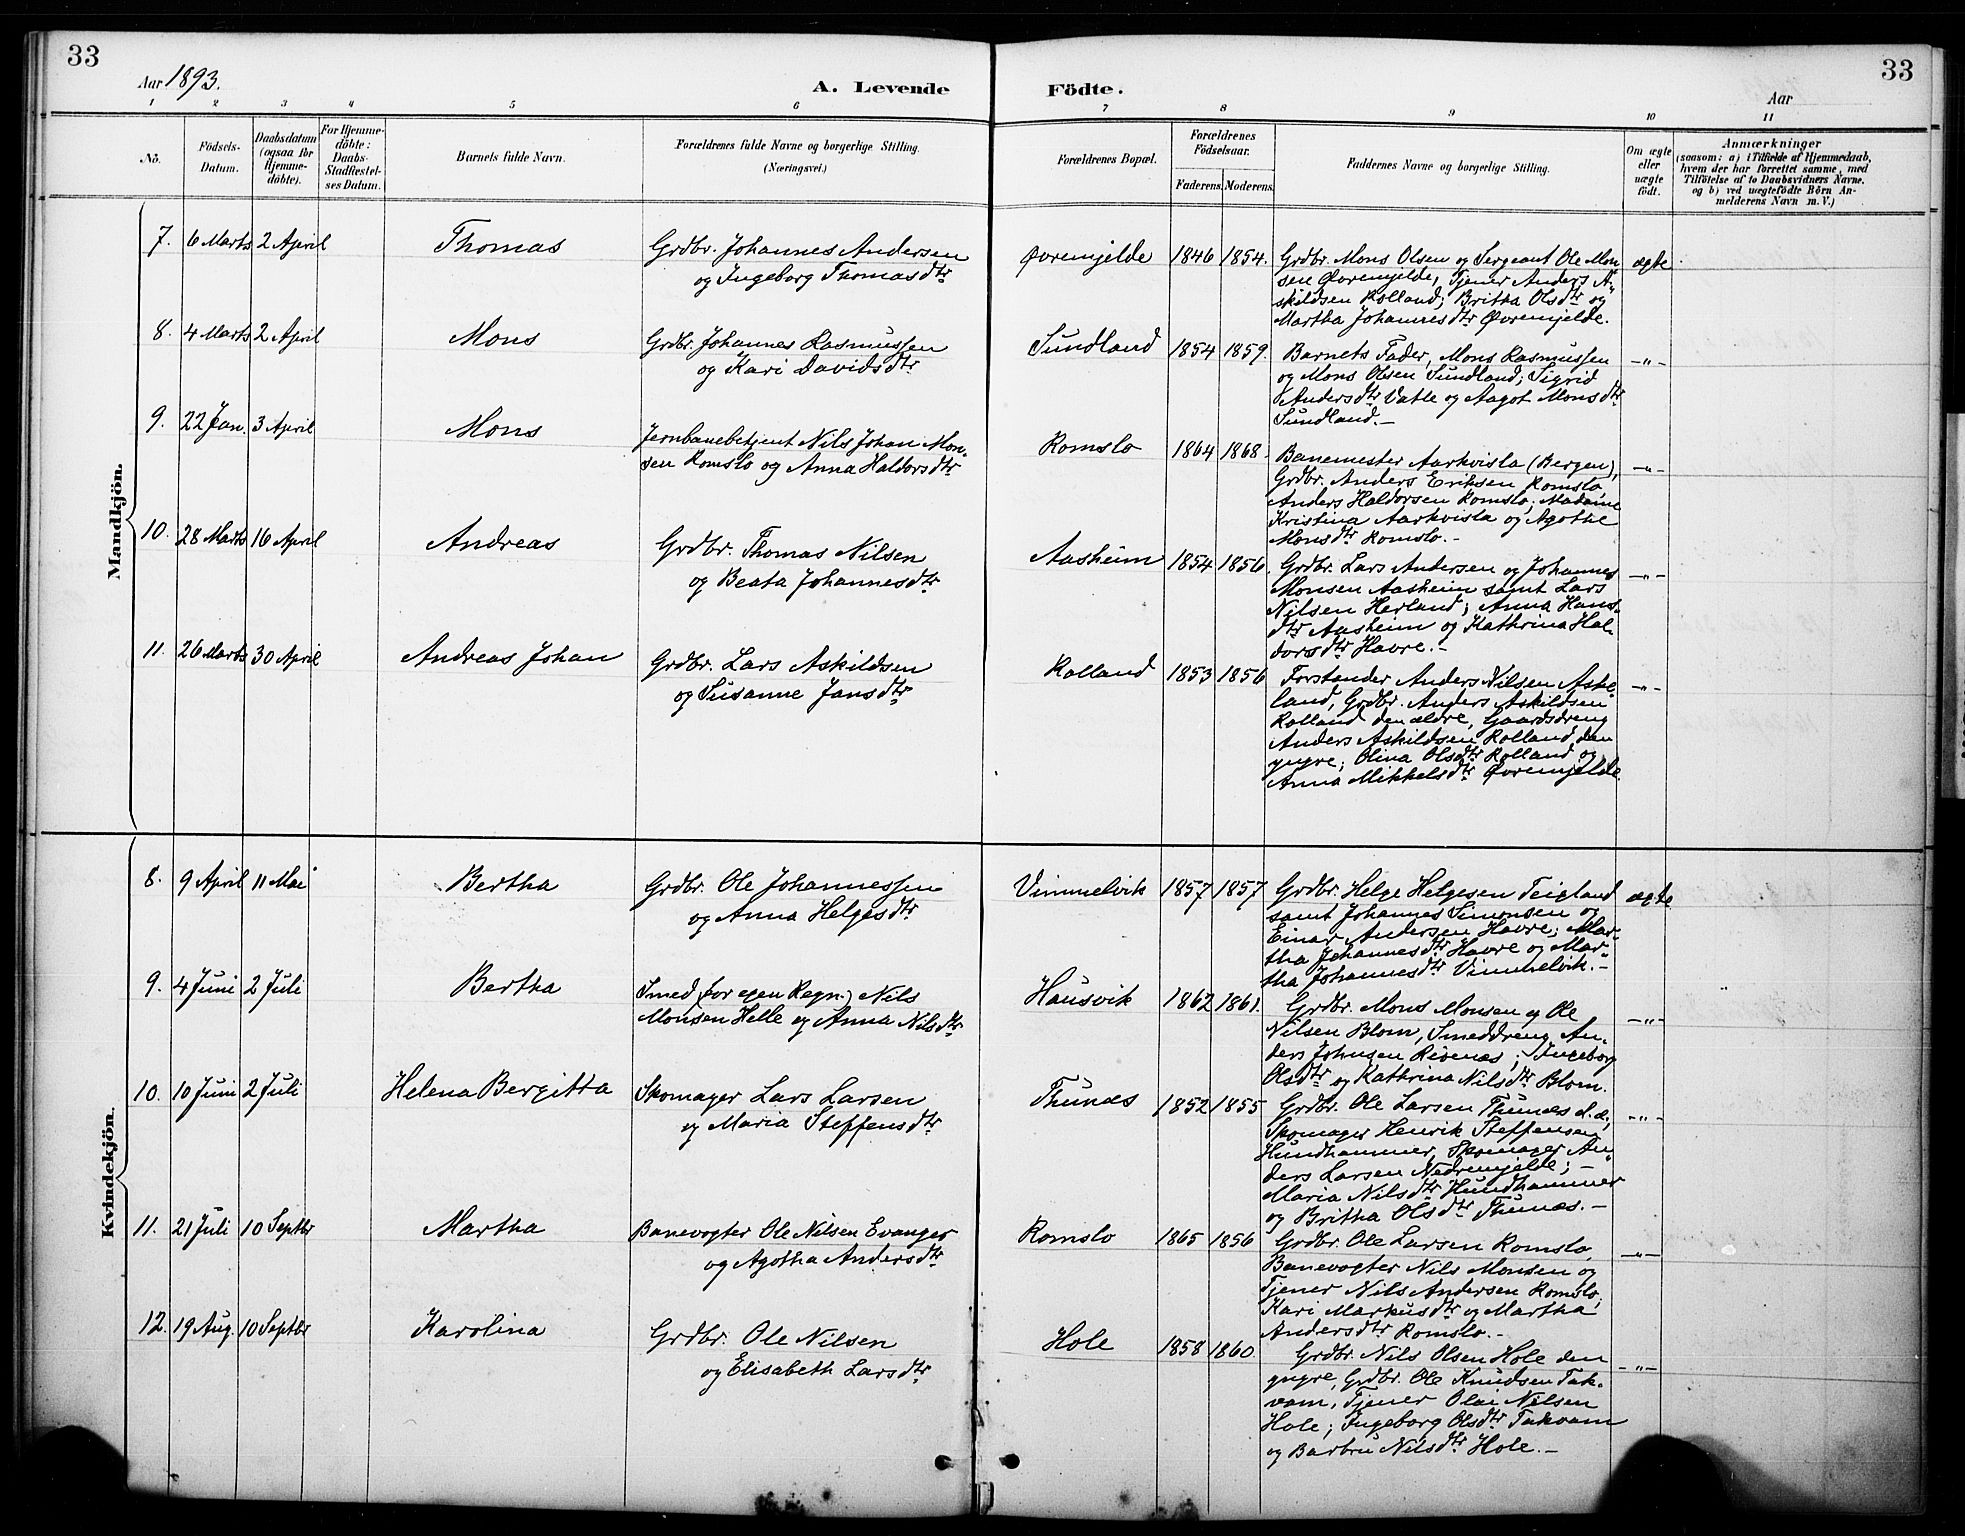 33
Aar 1893.
A. Levende
Födte.
Aar
33
1 2 3 4 5 6 7 8 9 10 11
No.
Födsels-
Datum.
Daabsdatum
(ogsaa for
Hjemme-
döbte).
For Hjemme-
döbte:
Daabs-
Stadfæstel-
ses Datum.
Barnets fulde Navn.
Forældrenes fulde Navne og borgerlige Stilling.
(Næringsvei.)
Forældrenes Bopæl.
Forældrenes
Födselsaar.
Faderens. Moderens.
Faddernes Navne og borgerlige Stilling.
Om ægte
eller
uægte
födt.
Anmærkninger
(saasom: a) i Tilfælde af Hjemmedaab,
hvem der har forrettet samme, med
Tilföielse af to Daabsvidners Navne,
og b) ved uægtefödte Börn An-
melderens Navn m. V.)
Mandkjön.
7. 6 Marts 2 April Thomas
Grdbr. Johannes Andersen
og Ingeborg Thomasdtr
Øvremjelde 1846 1854.
Grdbr. Mons Olsen og Sergeant Ole Mon
sen Øvremjelde, Tjener Anders A-
skildsen Rolland; Britha Olsdtr og
Martha Johannesdtr Øvremjelde.
ægte
8. 4 Marts 2 April Mons
Grdbr. Johannes Rasmussen
og Kari Davidsdtr
Sundland 1854 1859.
Barnets Fader, Mons Rasmussen
og Mons Olsen Sundland; Sigrid
Andersdtr Vatle og Aagot Monsdtr
Sundland.-
-"-
9. 22 Jan. 3 April Mons
Jernbanebetjent Nils Johan Mon-
sen Romslo og Anna Haldorsdtr
Romslo 1864 1868.
Banemester Aarkvisla (Bergen),
Grdbr. Anders Eriksen Romslo,
Anders Haldorsen Romslo; Madame
Kristina Aarkvisla og Agothe
Monsdtr Romslo.-
-"-
10. 28 Marts 16 April Andreas
Grdbr. Thomas Nilsen
og Beata Johannesdtr
Aasheim 1854 1856.
Grdbr. Lars Andersen og Johannes
Monsen Aasheim samt Lars
Nilsen Herland; Anna Hans-
dtr Aasheim og Kathrina Hal-
dorsdtr Havre.-
-"-
11. 26 Marts 30 April Andreas Johan
Grdbr. Lars Askildsen
og Susanne Jansdtr
Rolland 1853 1856
Forstander Anders Nilsen Aske-
land, Grdbr. Anders Askildsen
Rolland den ældre, Gaardsdreng
Anders Askildsen Rolland den
yngre; Olina Olsdtr Rolland og
Anna Mikkelsdtr Øvremjelde.
-"-
Kvindekjön.
8. 9 April 11 Mai Bertha
Grdbr. Ole Johannessen
og Anna Helgesdtr
Vimmelvik 1857 1857
Grdbr. Helge Helgesen Teigland
samt Johannes Simonsen og
Einar Andersen Havre; Mar-
tha Johannesdtr Havre og Mar-
tha Johannesdtr Vimmelvik.-
ægte
9. 4 Juni 2 Juli Bertha
Smed (for egen Regn.) Nils
Monsen Helle og Anna Nilsdtr
Hausvik 1862 1861.
Grdbr. Mons Monsen og Ole
Nilsen Blom, Smeddreng An-
ders Johnsen Rivenæs; Ingeborg
Olsdtr og Kathrina Nilsdtr Blom.
-"-
10. 10 Juni 2 Juli Helena Bergitta
Skomager Lars Larsen
og Maria Steffensdtr
Thunæs 1852 1855
Grdbr. Ole Larsen Thunæs d. æ,
Skomager Henrik Steffensen
Hundhammer, Skomager An-
ders Larsen Nedremjelde;-
Maria Nilsdtr Hundhammer
og Britha Olsdtr Thunæs.-
-"-
11. 21 Juli 10 Septbr Martha
Banevogter Ole Nilsen Evanger
og Agotha Andersdtr
Romslo 1865 1856
Grdbr. Ole Larsen Romslo,
Banevogter Nils Monsen og
Tjener Nils Andersen Romslo;
Kari Markusdtr og Martha
Andersdtr Romslo.-
-"-
12. 19 Aug. 10 Septbr Karolina
Grdbr. Ole Nilsen
og Elisabeth Larsdtr
Hole 1858 1860.
Grdbr. Nils Olsen Hole den
yngre, Grdbr. Ole Knudsen Tak-
vam, Tjener Olai Nilsen
Hole; Ingeborg Olsdtr Takvam
og Barbru Nilsdtr Hole.-
-"-